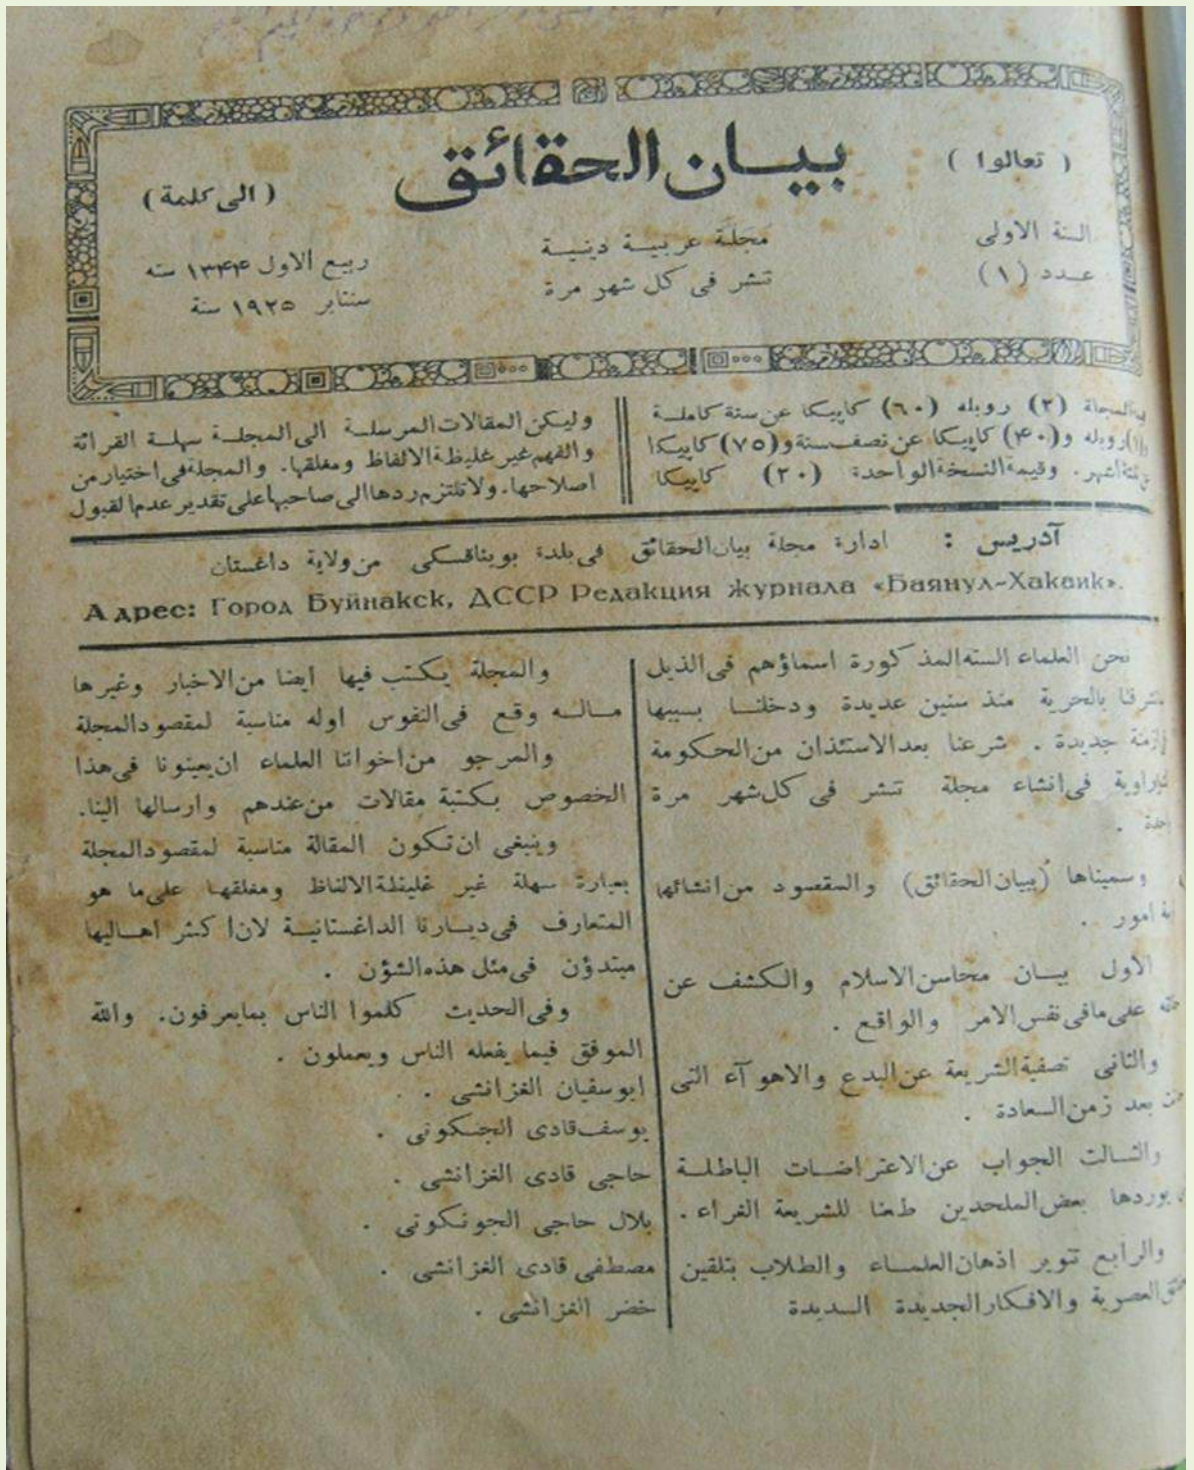 ( تعالوا )
بيان الحقائق
( الى كلمة )
السنة الاولى
عدد (١)
مجلة عربية دينية
تنشر فى كل شهر مرة
ربيع الاول ١٣۴۴ سنه
سنتابر ١٩٢٥ سنة
المجلة (٢) روبله (٦٠) كاپيكا عن سنة كاملة
روبله و(۴٠) كاپيكا عن نصف سنة و(٧٥) كاپيكا
اشهر. وقيمة النسخة الواحدة (٢٠) كاپيكا
وليكن المقالات المرسلة الى المجلة سهلة القرائة
والفهم غير غليظة الالفاظ ومغلقها. والمجلة فى اختيار من
اصلاحها. ولا تلتزم ردها الى صاحبها على تقدير عدم القبول
آدريس : ادارة مجلة بيان الحقائق فى بلدة بويناقسكى من ولاية داغستان
Адрес: Город Буйнакск, ДССР Редакция журнала «Баянул-Хакаик».
نحن العلماء السته المذكورة اسماؤهم فى الذيل
بالحرية منذ سنين عديدة ودخلنا بسببها
جديدة . شرعنا بعد الاستئذان من الحكومة
فى انشاء مجلة تنشر فى كل شهر مرة
وسميناها (ببيان الحقائق) والمقصود من انشائها
امور .
الاول بيان محاسن الاسلام والكشف عن
على ما فى نفس الامر والواقع .
والثانى تصفية الشريعة عن البدع والاهوآء التى
بعد زمن السعادة .
والثالث الجواب عن الاعتراضات الباطلة
يوردها بعض الملحدين طعنا للشريعة الغراء .
والرابع تنوير اذهان العلماء والطلاب بتلقين
العصرية والافكار الجديدة السديدة
والمجلة يكتب فيها ايضا من الاخبار وغيرها
ماله وقع فى النفوس اوله مناسبة لمقصود المجلة
والمرجو من اخواننا العلماء ان يعينونا فى هذا
الخصوص بكتبة مقالات من عندهم وارسالها الينا.
وينبغى ان تكون المقالة مناسبة لمقصود المجلة
بعبارة سهلة غير غليظة الالفاظ ومغلقها على ما هو
المتعارف فى ديارنا الداغستانية لان اكثر اهاليها
مبتدؤن فى مثل هذه الشؤن .
وفى الحديث كلموا الناس بما يعرفون. والله
الموفق فيما يفعله الناس ويعملون .
ابو سفيان الغزانشى .
يوسف قادى الجنكوتى .
حاجى قادى الغزانشى .
بلال حاجى الجونكوتى .
مصطفى قادى الغزانشى .
خضر الغزانشى .